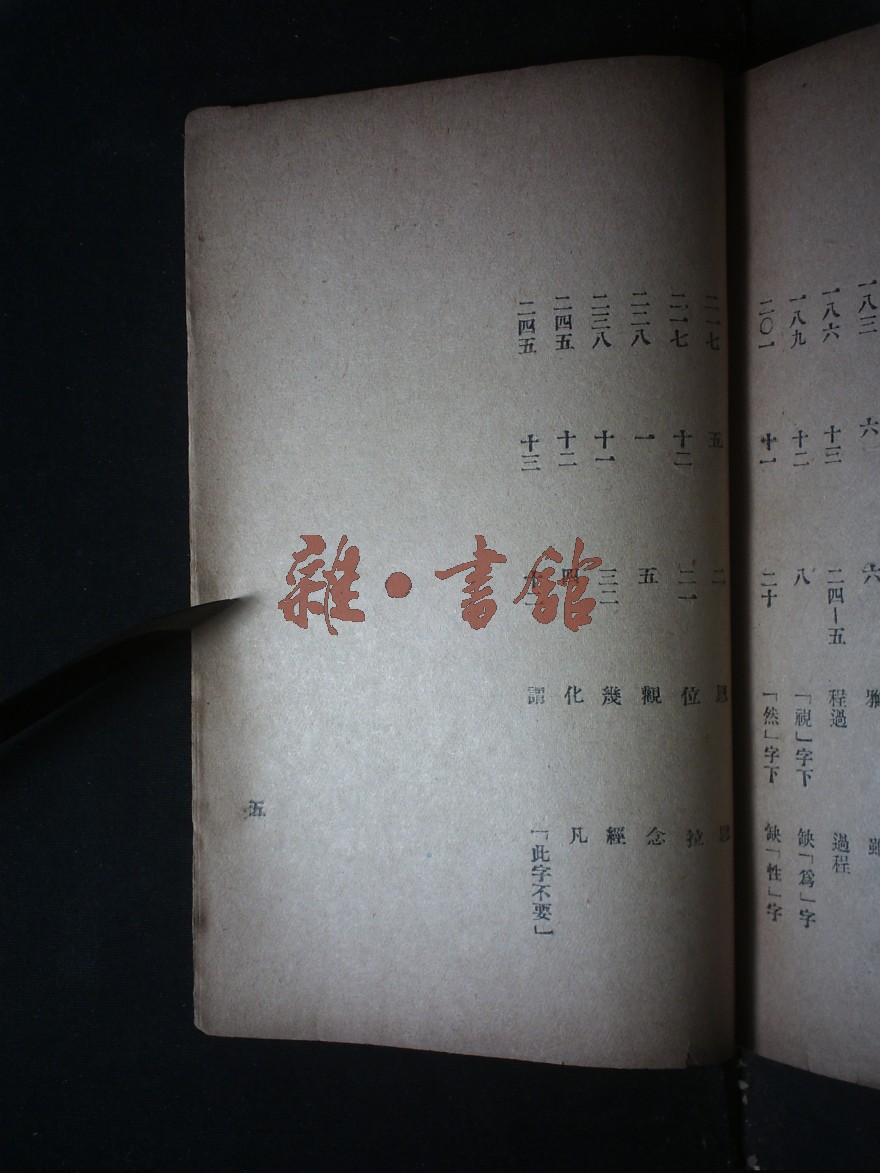 一八三 六 六
一八六 十三 二四—五 程過 過程
一八九 十二 八 「視」字下 缺「爲」字
二〇一 十一 二十 「然」字下 缺「性」字
二一七 五 二
二一七 十二 二一 位 拉
二二八 一 五 觀 念
二三八 十一 三二 幾 經
二四五 十二 四 化 凡
二四五 十三 謂 「此字不要」
五
雜·書館